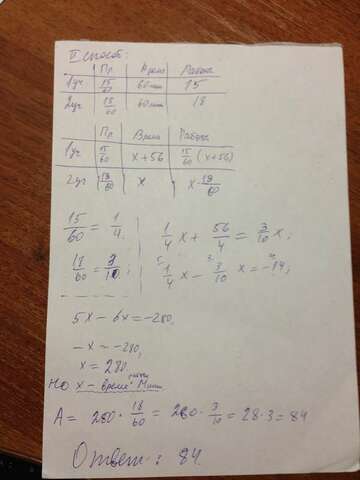 II способ:
Пр. Время Работа
1уч 15/60 60мин 15
2уч 18/60 60мин 18
Пр. Время Работа
1уч 15/60 x+56 15/60 (x+56)
2уч 18/60 x x·18/60
15/60 = 1/4. 1/4 x + 56/4 = 3/10 x;
18/60 = 3/10; 1/4 x - 3/10 x = -14;
5x - 6x = -280,
-x = -280,
x = 280.
Но x - время Маши
A = 280 · 18/60 = 280 · 3/10 = 28·3 = 84
Ответ: 84.